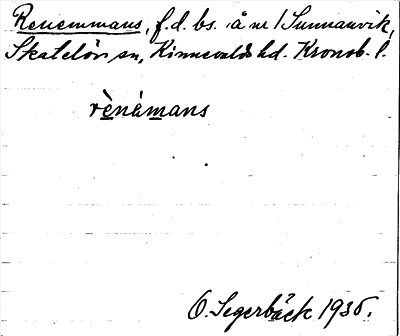 Renemmans, f.d. bs. å nr 1 Sunnanvik,
Skatelöv sn, Kinnevalds hd. Kronob. l.
rènámans
O. Segerbäck 1935.